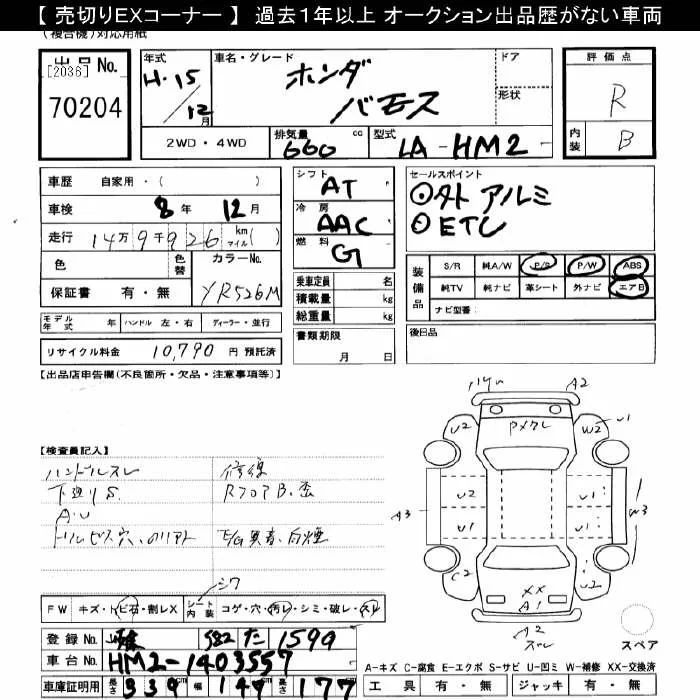 【 売切りEXコーナー 】 過去1年以上 オークション出品歴がない車両
(複合機)対応用紙
出品No.
[2036]
70204
年式
H.15/12月
車名・グレード
ホンダ
バモス
ドア
形状
評価点
R
内装
B
2WD・4WD
排気量
660 cc
型式
LA-HM2
車歴 自家用・( )
車検 8年 12月
走行 14万9千926 km マイル( )
色
色替
カラーNo.
YR526M
保証書 有・無
シフト
AT
冷房
AAC
燃料
G
セールスポイント
◎外 アルミ
◎ETC
乗車定員 名
積載量 kg
総重量 kg
装備品
S/R 純A/W P/S P/W ABS
純TV 純ナビ 革シート 外ナビ エアB
ナビ型番:
モデル年式 年 ハンドル 左・右 ディーラー・並行
書類期限
月 日
後日品
リサイクル料金 10,790 円 預託済
【出品店申告欄(不良箇所・欠品・注意事項等)】
A2
U2
W2
U1
【検査員記入】
ハンドルスレ
修復
下廻りS
RフロアB.歪
A.U
E/G異音、白煙
A3
U2
U1
U1
U1
W3
C2
U2
XX
A1
A2
スレ
シワ
スペア
FW キズ・トビ石・割レX
シート内装
コゲ・穴・汚レ・シミ・破レ・スレ
登録 No. 582 た 1599
車台 No. HM2-1403557
車庫証明用 長さ 339 cm 幅 147 cm 高さ 177
A-キズ C-腐食 E-エクボ S-サビ U-凹ミ W-補修 XX-交換済
工具 有・無 ジャッキ 有・無